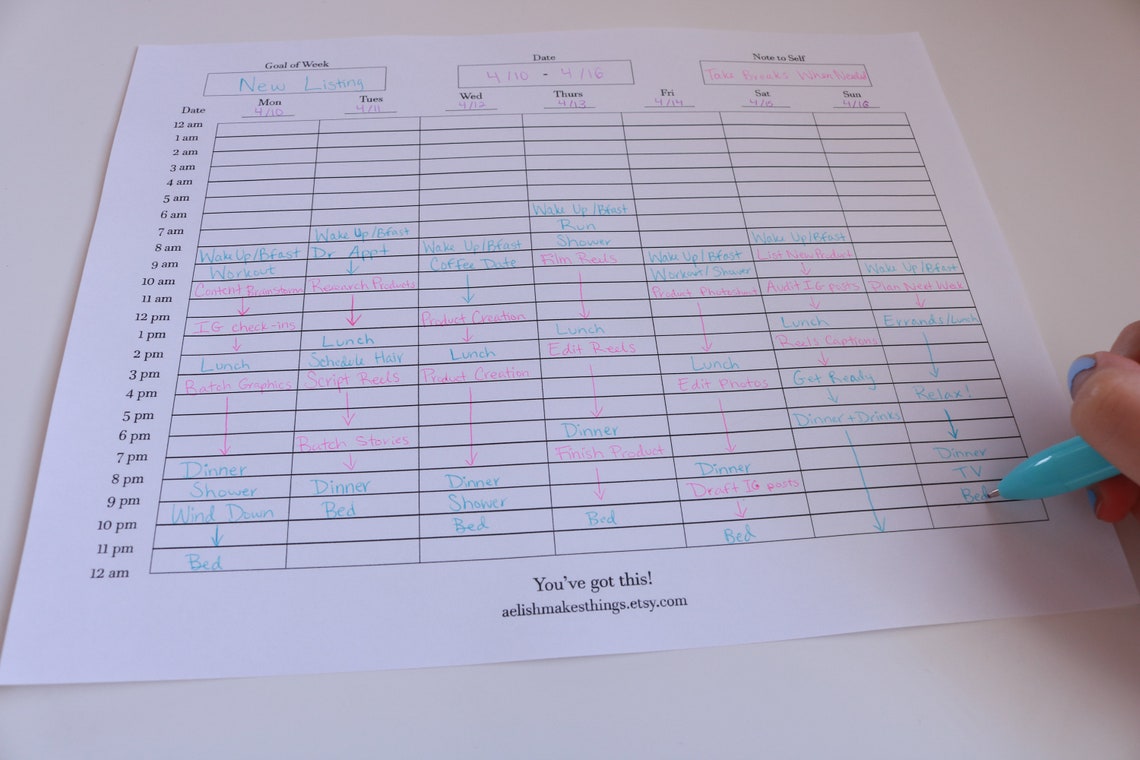 Goal of Week Date Note to Self
New Listing 4/10 - 4/16 Take Breaks When Needed
Date Mon Tues Wed Thurs Fri Sat Sun
4/10 4/11 4/12 4/13 4/14 4/15 4/16
12 am
1 am
2 am
3 am
4 am
5 am
6 am Wake Up/Bfast
7 am Wake Up/Bfast Run
8 am Wake Up/Bfast Dr Appt Wake Up/Bfast Shower Wake Up/Bfast
9 am Workout Coffee Date Film Reels Wake Up/Bfast List New Product
10 am Content Brainstorm Research Products Workout/Shower Wake Up/Bfast
11 am Product Photoshoot Audit IG posts Plan Next Week
12 pm IG check-ins Product Creation
1 pm Lunch Lunch Lunch Errands/Lunch
2 pm Lunch Schedule Hair Lunch Edit Reels Reels Captions
3 pm Batch Graphics Script Reels Product Creation Lunch
4 pm Edit Photos Get Ready Relax!
5 pm
6 pm Batch Stories Dinner Dinner + Drinks
7 pm Dinner Finish Product Dinner
8 pm Shower Dinner Dinner Dinner TV
9 pm Wind Down Bed Shower Draft IG posts Bed
10 pm Bed Bed
11 pm Bed Bed
12 am
You've got this!
aelishmakesthings.etsy.com